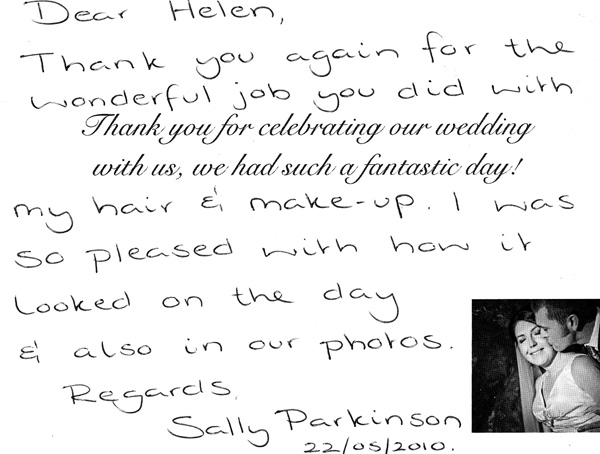 Dear Helen,
Thank you again for the
wonderful job you did with
Thank you for celebrating our wedding
with us, we had such a fantastic day!
my hair & make-up. I was
so pleased with how it
looked on the day
& also in our photos.
Regards,
Sally Parkinson
22/05/2010.